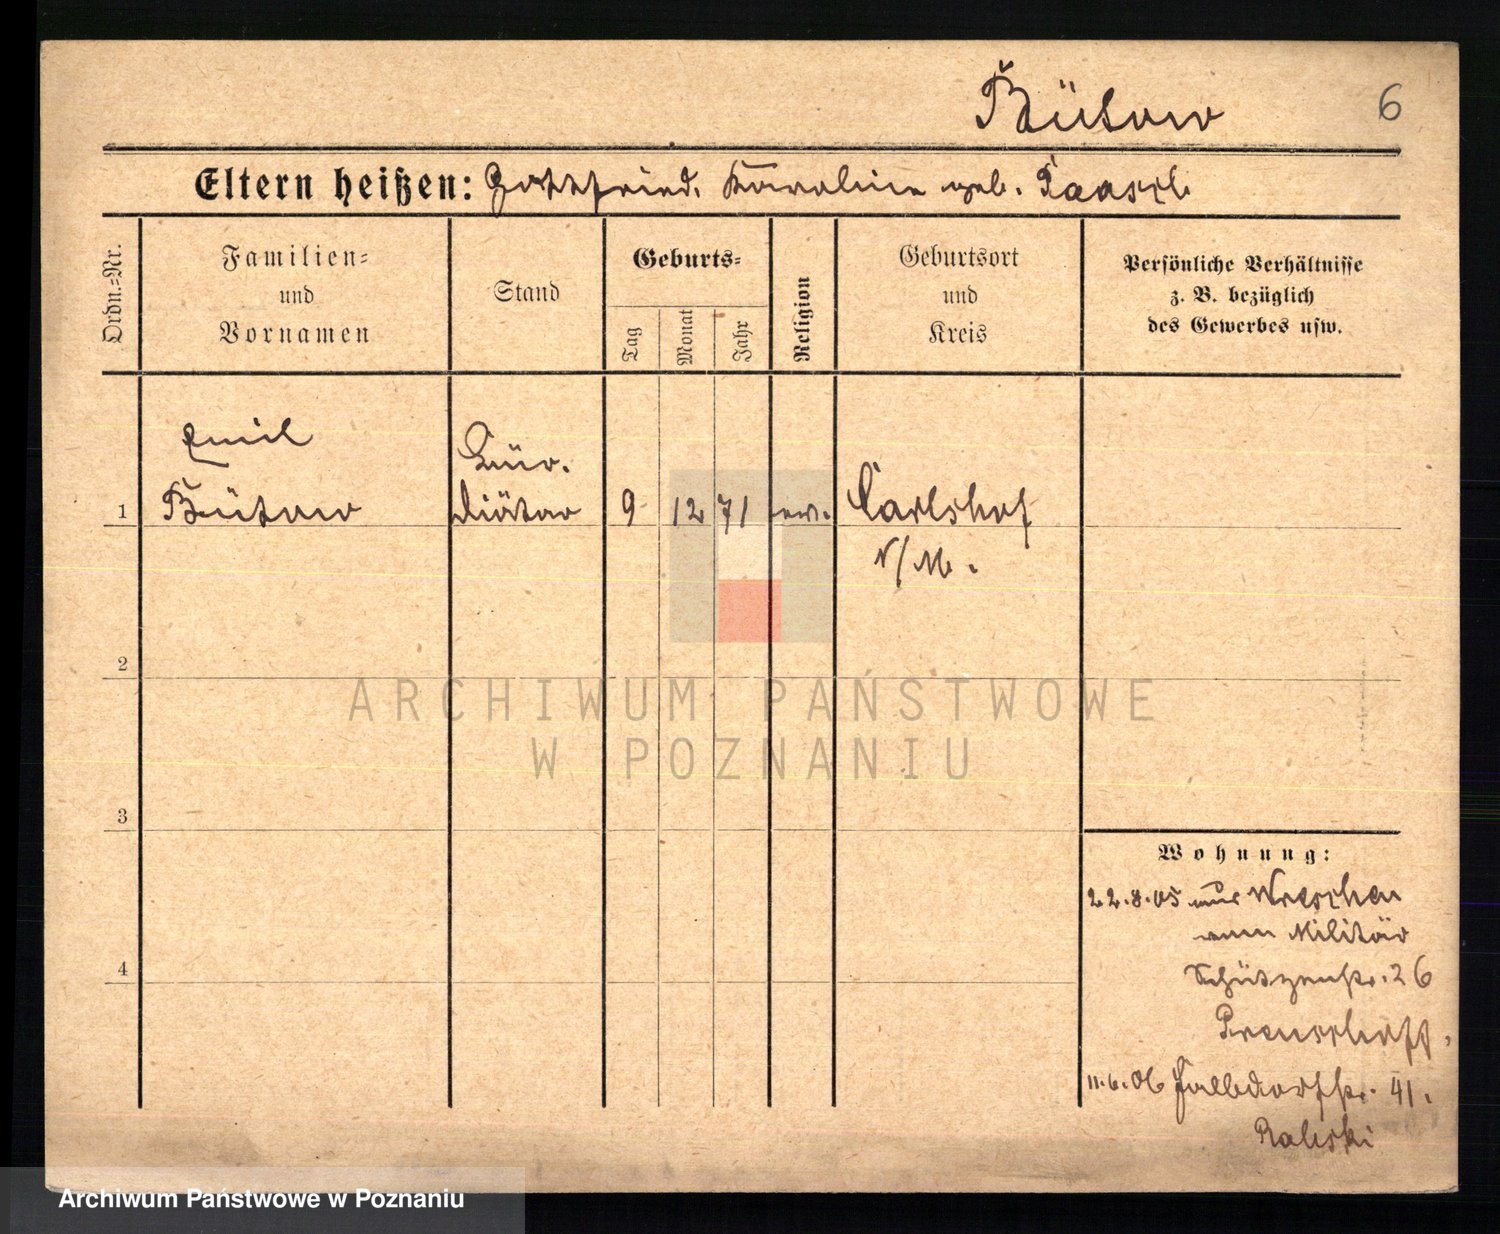 Bütow
6
Eltern heißen: Gottfried, Karoline geb. Paasch
Ordn.=Nr.
Familien=
und
Vornamen
Stand
Geburts=
Tag
Monat
Jahr
Religion
Geburtsort
und
Kreis
Persönliche Verhältnisse
z. B. bezüglich
des Gewerbes usw.
Emil
Bütow
Bür.
diätar
1
9
12
71
ev.
Carlshof
N/M.
2
3
4
Wohnung:
22.8.05 aus Wreschen
vom Militär
Schützenstr. 26
11.6.06 Halbdorfstr. 41.
Ratiski
ARCHIWUM PAŃSTWOWE
W POZNANIU
Archiwum Państwowe w Poznaniu